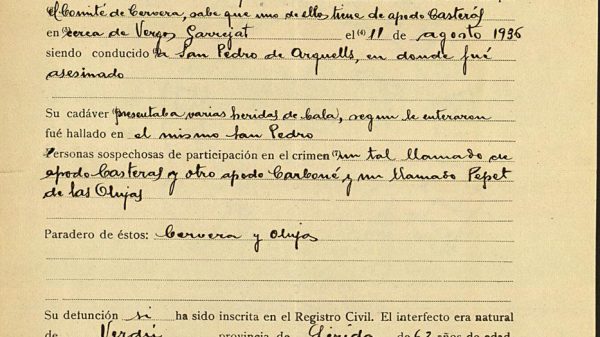 el Comité de Cervera, sabe que uno de ellos tiene de apodo Casterás
en cerca de Vergos Garrejat el (4) 11 de agosto 1936
siendo conducido a San Pedro de Arquells, en donde fué
asesinado
Su cadáver presentaba varias heridas de bala, segun le enteraron
fué hallado en el mismo San Pedro
Personas sospechosas de participación en el crimen un tal llamado de
apodo Casteras y otro apodo Carboné y un llamado Pepet
de las Olujas
Paradero de éstos: Cervera y Olujas
Su defunción si ha sido inscrita en el Registro Civil. El interfecto era natural
de Verdú provincia de Lérida de 62 años de edad